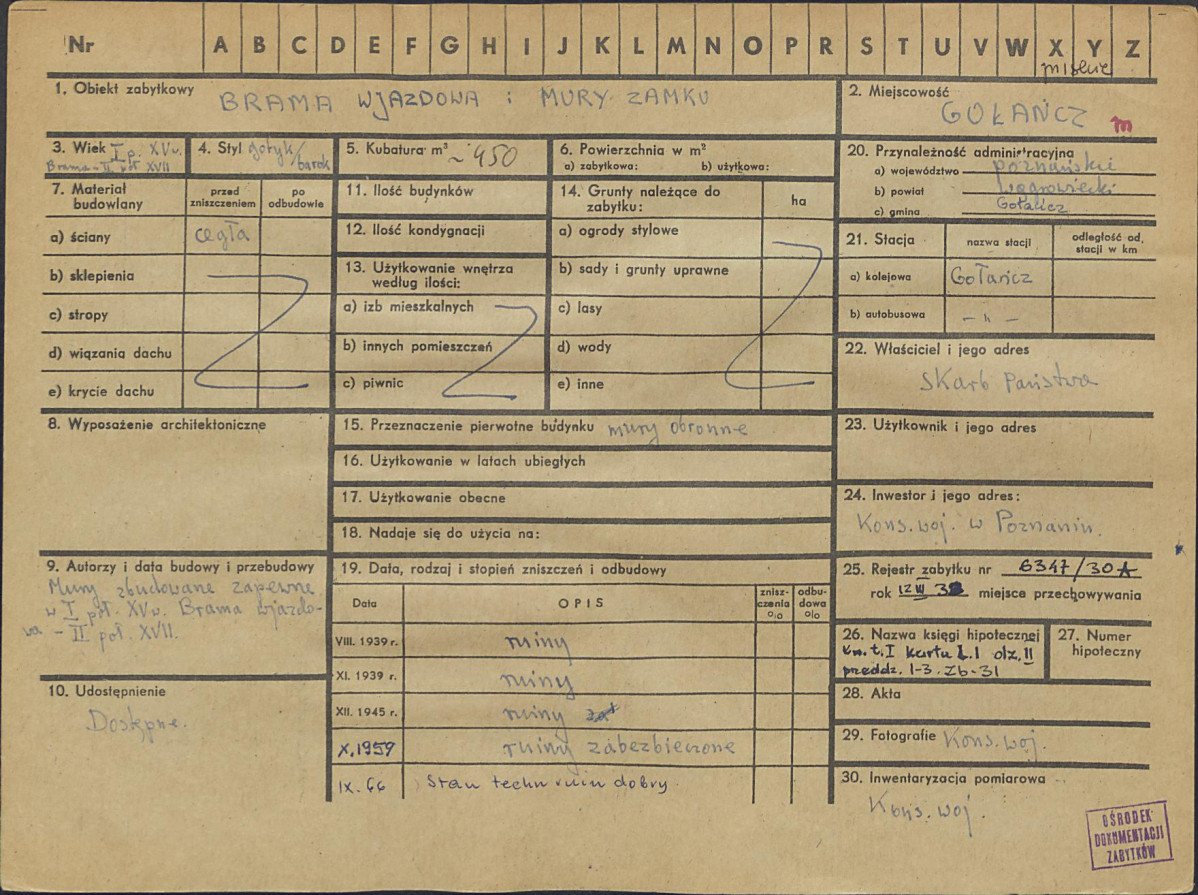 Nr A B C D E F G H I J K L M N O P R S T U V W X Y Z
miskie
1. Obiekt zabytkowy BRAMA WJAZDOWA i MURY ZAMKU
2. Miejscowość
GOŁAŃCZ m
3. Wiek I p. XV w.
Brama - II poł XVII
4. Styl gotyk/
barok
5. Kubatura m³ ~ 450
6. Powierzchnia w m²
a) zabytkowa: b) użytkowa:
7. Materiał
budowlany
przed
zniszczeniem
po
odbudowie
a) ściany cegła
b) sklepienia
c) stropy
d) wiązania dachu
e) krycie dachu
11. Ilość budynków
12. Ilość kondygnacji
13. Użytkowanie wnętrza
według ilości:
a) izb mieszkalnych
b) innych pomieszczeń
c) piwnic
14. Grunty należące do
zabytku:
ha
a) ogrody stylowe
b) sady i grunty uprawne
c) lasy
d) wody
e) inne
20. Przynależność administracyjna
a) województwo poznańskie
b) powiat wągrowiecki
c) gmina Gołańcz
21. Stacja
nazwa stacji
odległość od
stacji w km
a) kolejowa Gołańcz
b) autobusowa - " -
22. Właściciel i jego adres
Skarb Państwa
8. Wyposażenie architektoniczne
15. Przeznaczenie pierwotne budynku mury obronne
16. Użytkowanie w latach ubiegłych
17. Użytkowanie obecne
18. Nadaje się do użycia na:
23. Użytkownik i jego adres
24. Inwestor i jego adres:
Kons. woj. w Poznaniu.
9. Autorzy i data budowy i przebudowy
Mury zbudowane zapewne
w I poł. XV w. Brama wjazdo-
wa - II poł. XVII.
10. Udostępnienie
Dostępne.
19. Data, rodzaj i stopień zniszczeń i odbudowy
Data
OPIS
znisz-
czenia
o/o
odbu-
dowa
o/o
VIII. 1939 r. ruiny
XI. 1939 r. ruiny
XII. 1945 r. ruiny
X. 1959 ruiny zabezbieczone
IX. 66 Stan techn ruin dobry
25. Rejestr zabytku nr 6347/30A
rok 12 III 32 miejsce przechowywania
26. Nazwa księgi hipotecznej
Kw. t. I karta L. 1 dz. II
przeddz. 1-3. Zb-31
27. Numer
hipoteczny
28. Akta
29. Fotografie Kons. woj.
30. Inwentaryzacja pomiarowa
Kons. woj.
OŚRODEK
DOKUMENTACJI
ZABYTKÓW